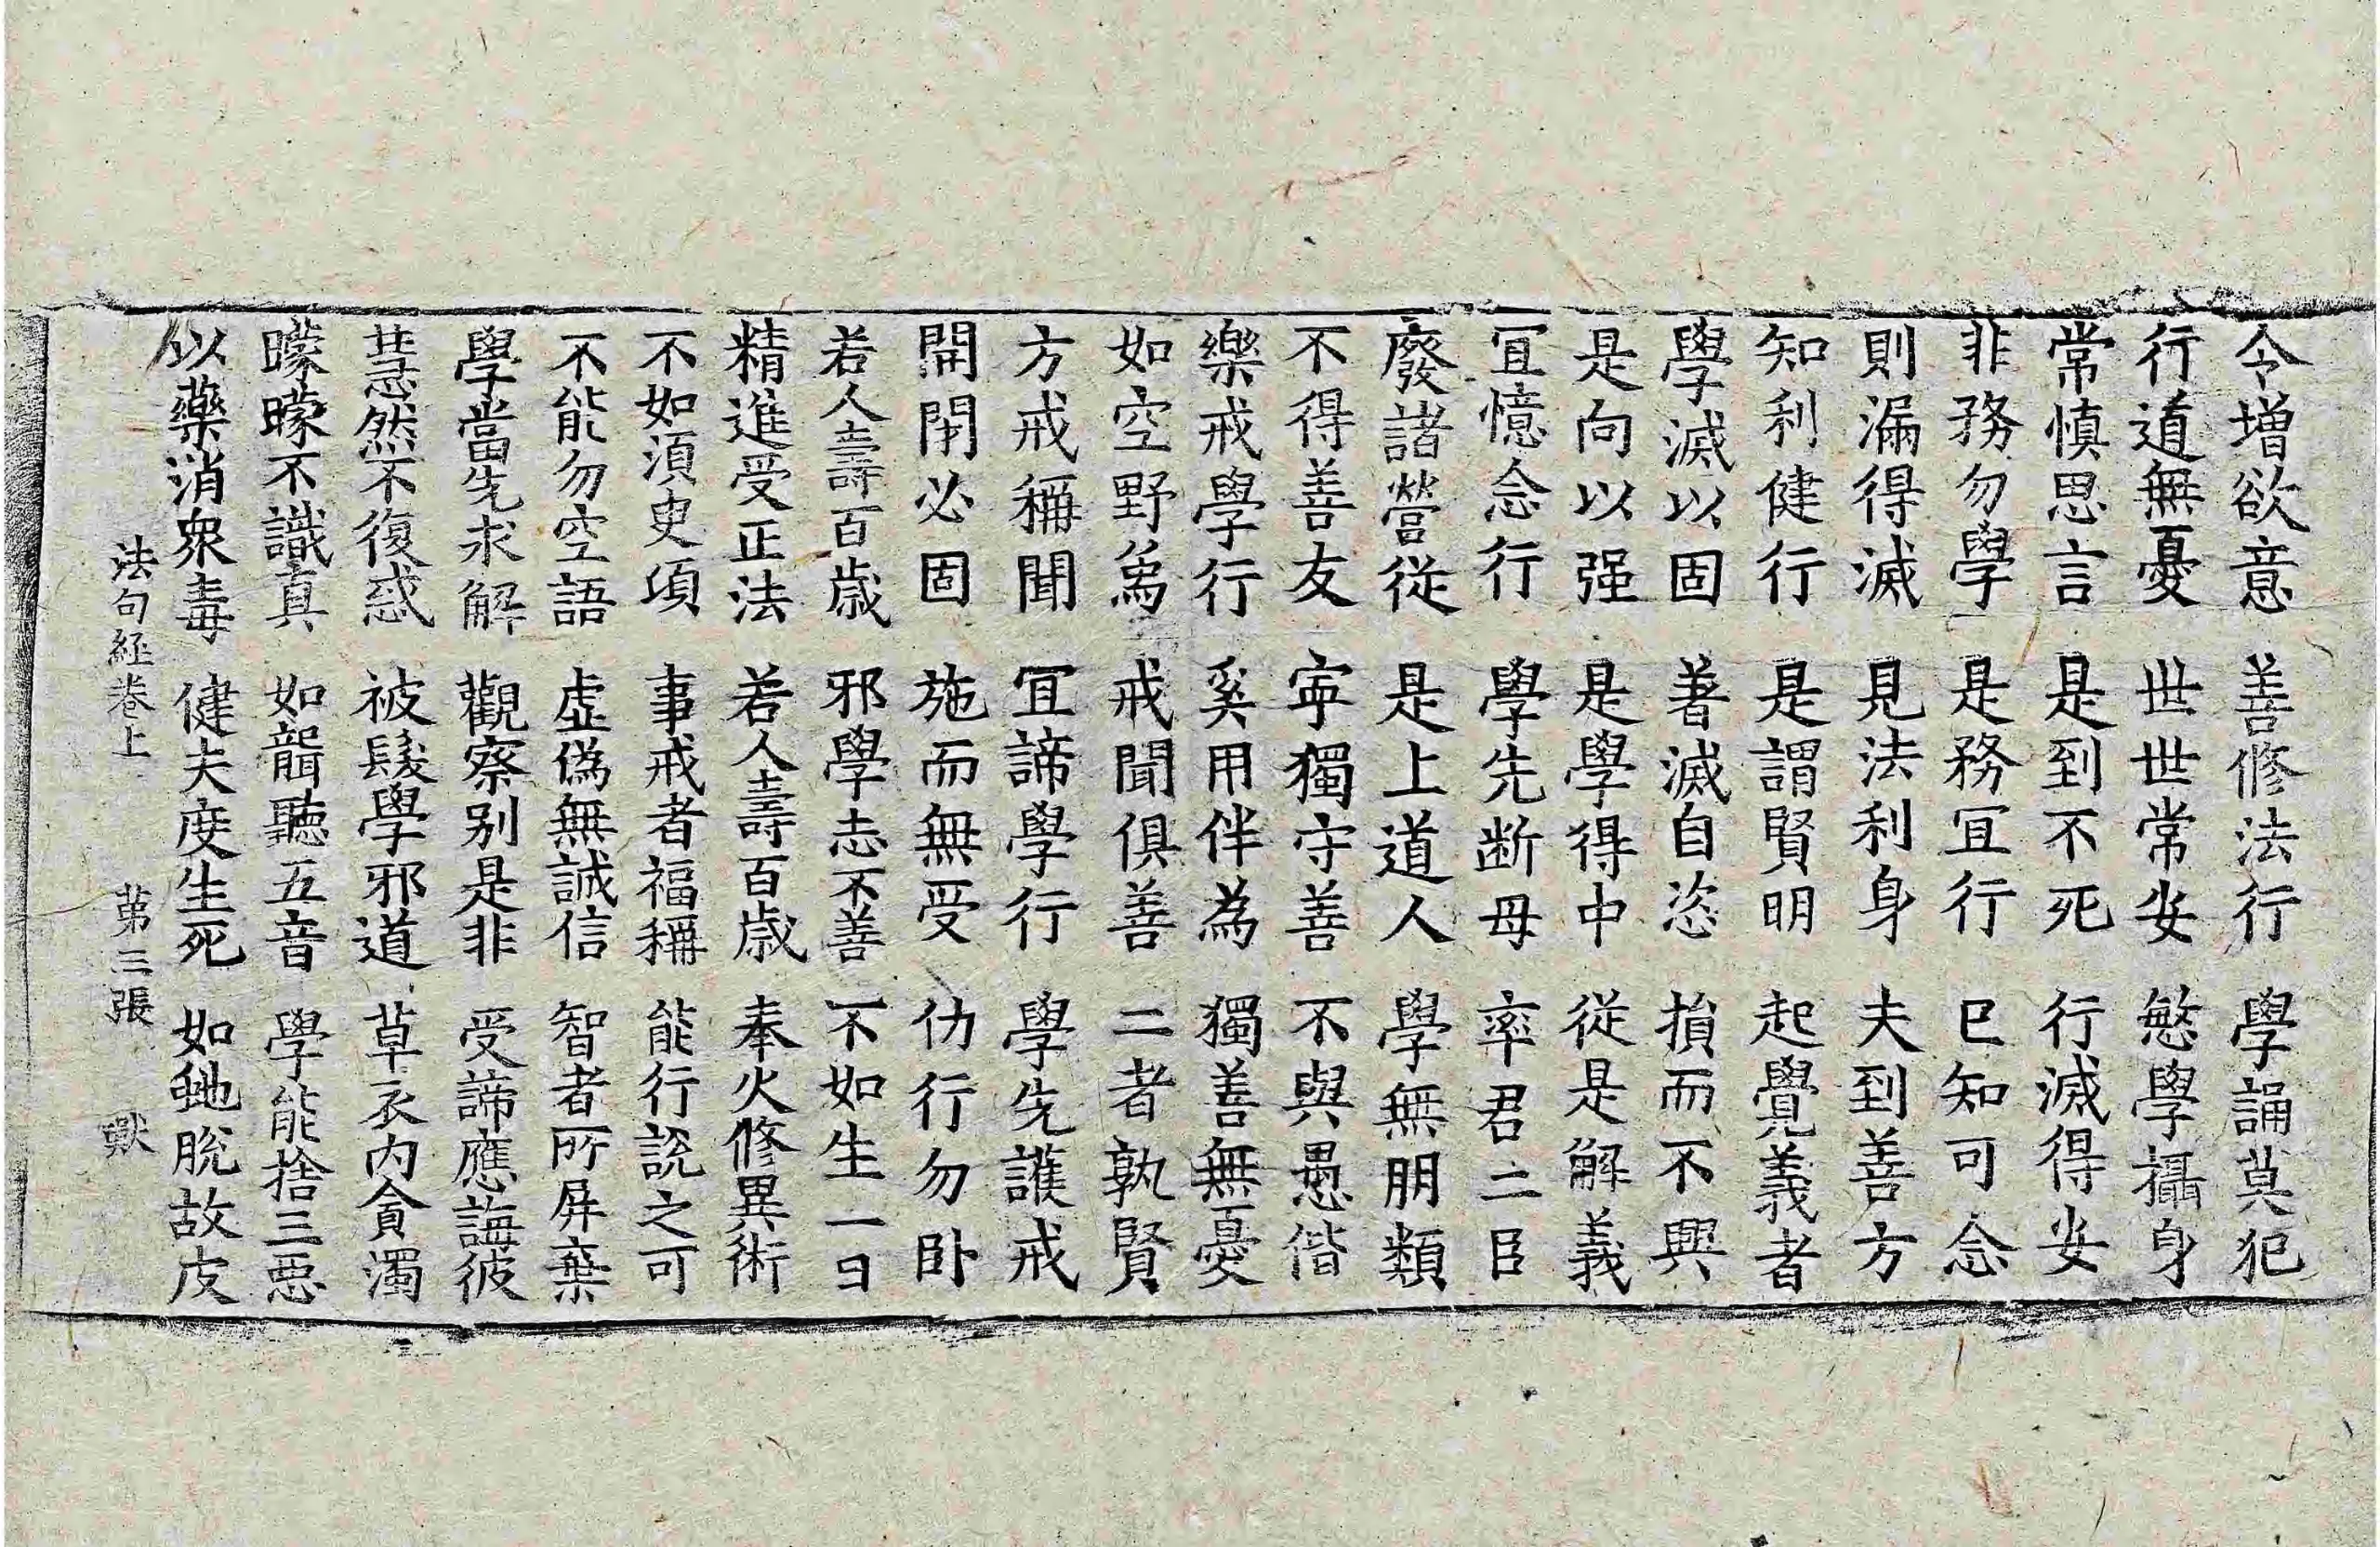 令增欲意 善修法行 學誦莫犯
行道無憂 世世常安 慜學攝身
常慎思言 是到不死 行滅得安
非務勿學 是務冝行 已知可念
則漏得滅 見法利身 夫到善方
知利健行 是謂賢明 起覺義者
學滅以固 著滅自恣 損而不興
是向以强 是學得中 從是解義
冝憶念行 學先断母 率君二臣
廢諸營從 是上道人 學無朋類
不得善友 寧獨守善 不與愚偕
樂戒學行 奚用伴為 獨善無憂
如空野爲 戒聞俱善 二者孰賢
方戒稱聞 冝諦學行 學先護戒
開閉必固 施而無受 仂行勿卧
若人壽百歲 邪學志不善 不如生一日
精進受正法 若人壽百歲 奉火修異術
不如須臾項 事戒者福稱 能行說之可
不能勿空語 虛僞無誠信 智者所屏棄
學當先求解 觀察別是非 受諦應誨彼
慧然不復惑 被髮學邪道 草衣內貪濁
曚曚不識真 如聾聽五音 學能捨三惡
以藥消衆毒 健夫度生死 如虵脫故皮
法句經卷上 第三張 獸